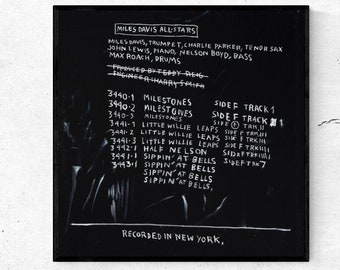 MILES DAVIS ALL-STARS
MILES DAVIS, TRUMPET, CHARLIE PARKER, TENOR SAX
JOHN LEWIS, PIANO, NELSON BOYD, BASS
MAX ROACH, DRUMS
PRODUCED BY TEDDY REIG
ENGINEER: HARRY SMITH
3440·1 MILESTONES SIDE F TRACK 1
3440·2 MILESTONES SIDE F TRACK 1
3440·3 MILESTONES SIDE F TRACK
3441·1 LITTLE WILLIE LEAPS SIDE F
3441·2 LITTLE WILLIE LEAPS SIDE F
3441·3 LITTLE WILLIE LEAPS SIDE F
3442·1 HALF NELSON SIDE F
3441·1 SIPPIN' AT BELLS SIDE F TRK 7
3443·1 SIPPIN' AT BELLS
SIPPIN' AT BELLS
SIPPIN' AT BELLS,
RECORDED IN NEW YORK,